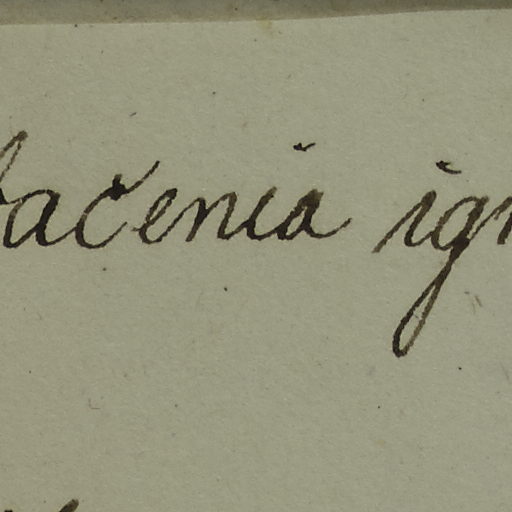 tačenia ign